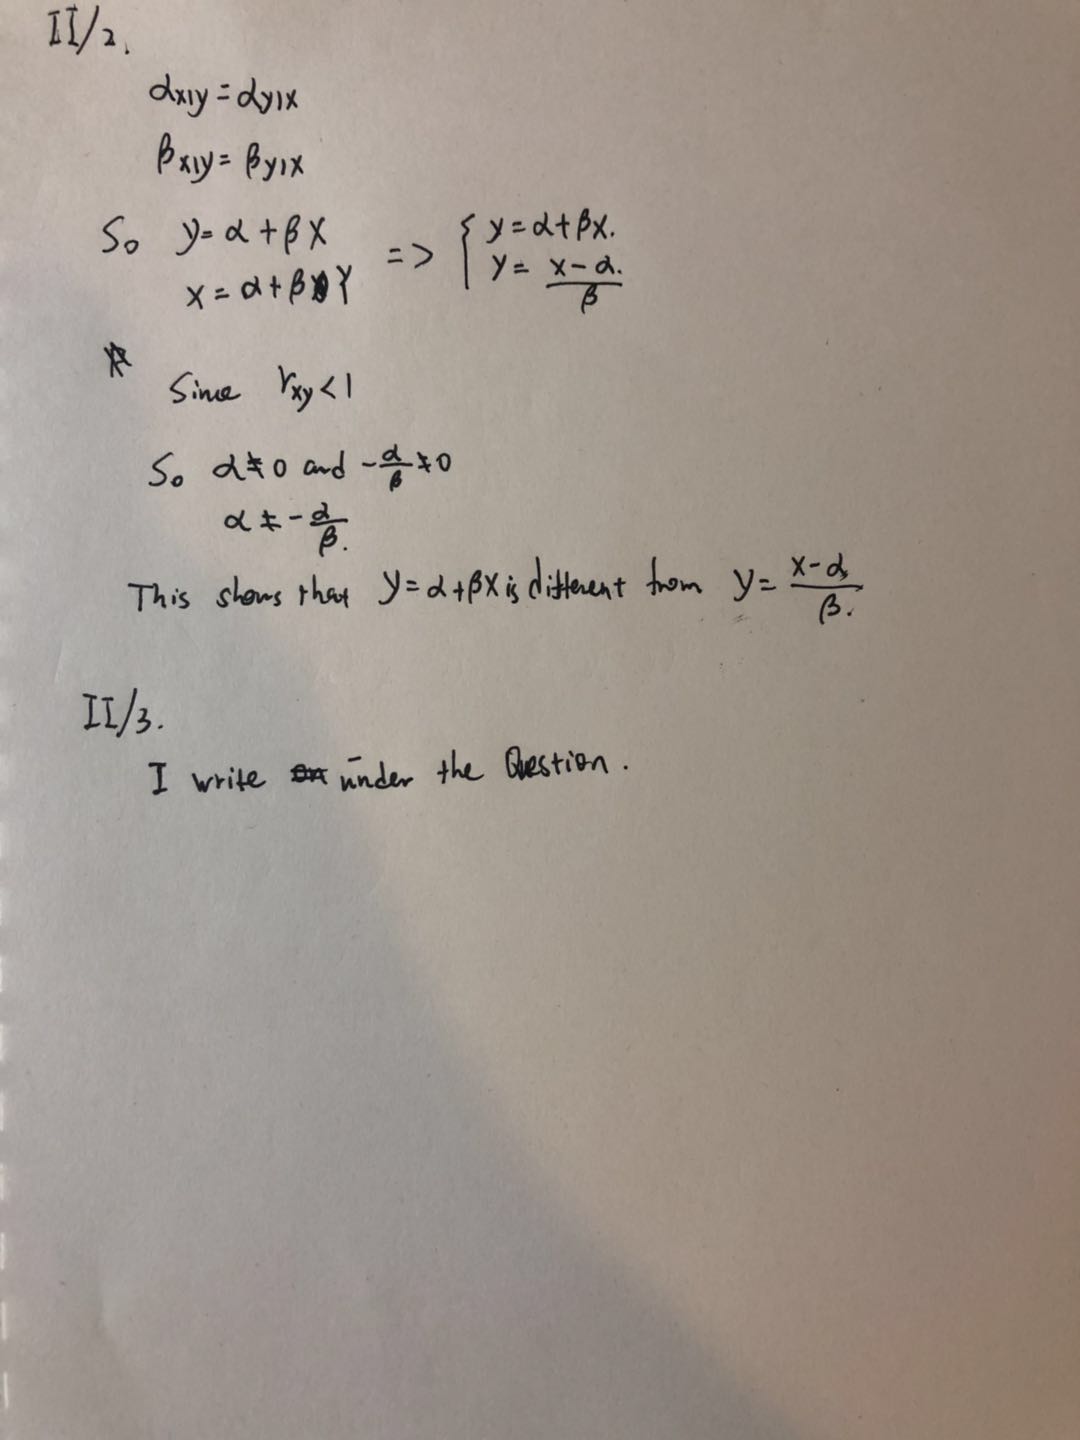 II/2.
αx|y = αy|x
βx|y = βy|x
So y = α + βX => { y = α + βX.
x = α + βY y = x - α. / β
* Since rxy < 1
So α ≠ 0 and -α/β ≠ 0
α ≠ -α/β.
This shows that y = α + βX is different from y = x - α / β.
II/3.
I write under the Question.